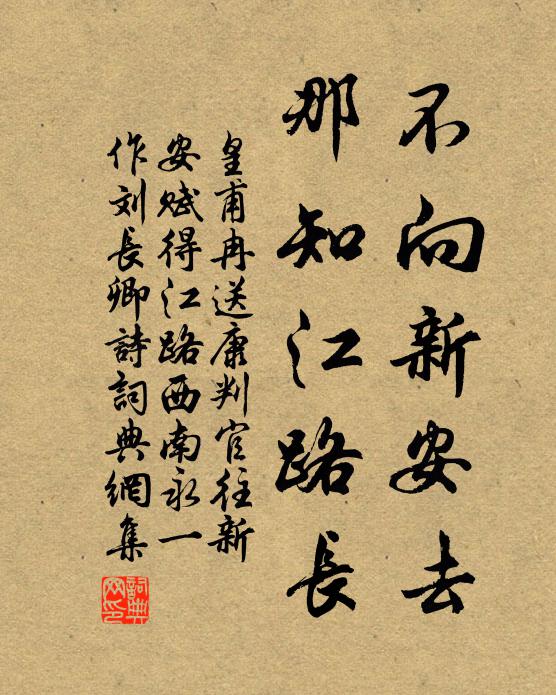 不向新安去
那知江路長
皇甫冉送康判官往新
安賦得江路西南永一
作刘長卿詩詞典網集
詞典网印